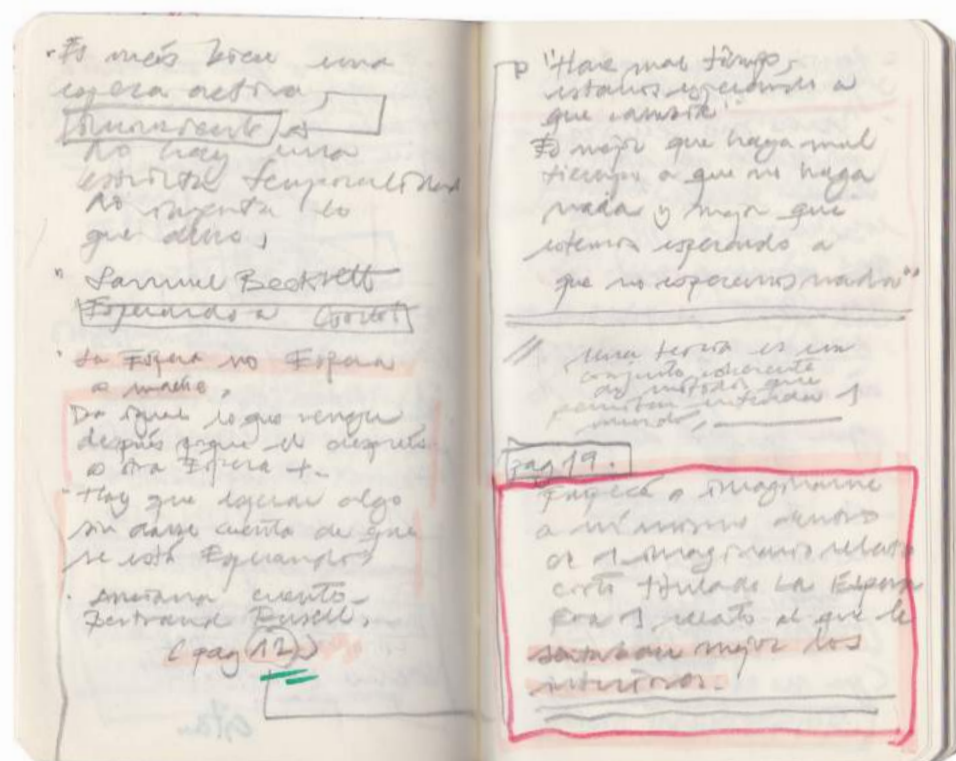 Es más bien una
espera activa,
no hay una
estricta temporalidad
no inventa lo
que
" Samuel Beckett
Esperando a Godot
La Espera no Espera
a nadie.
Da igual lo que venga
después porque el después
es otra Espera +.
Hay que esperar algo
sin darse cuenta de que
se está Esperando
cuento
Bertrand Rusell,
(pag 12)
"Hace mal tiempo,
estamos esperando a
que cambie"
Es mejor que haya mal
tiempo a que no haga
nada y mejor que
estemos esperando a
que no esperemos nada"
// una teoría es un
conjunto coherente
de métodos que
permiten entender el
mundo,
pag 19.
Empecé a imaginarme
a mí mismo dentro
de el imaginario relato
corto titulado La Espera
Era el relato al que le
sentaban mejor los
interiores.